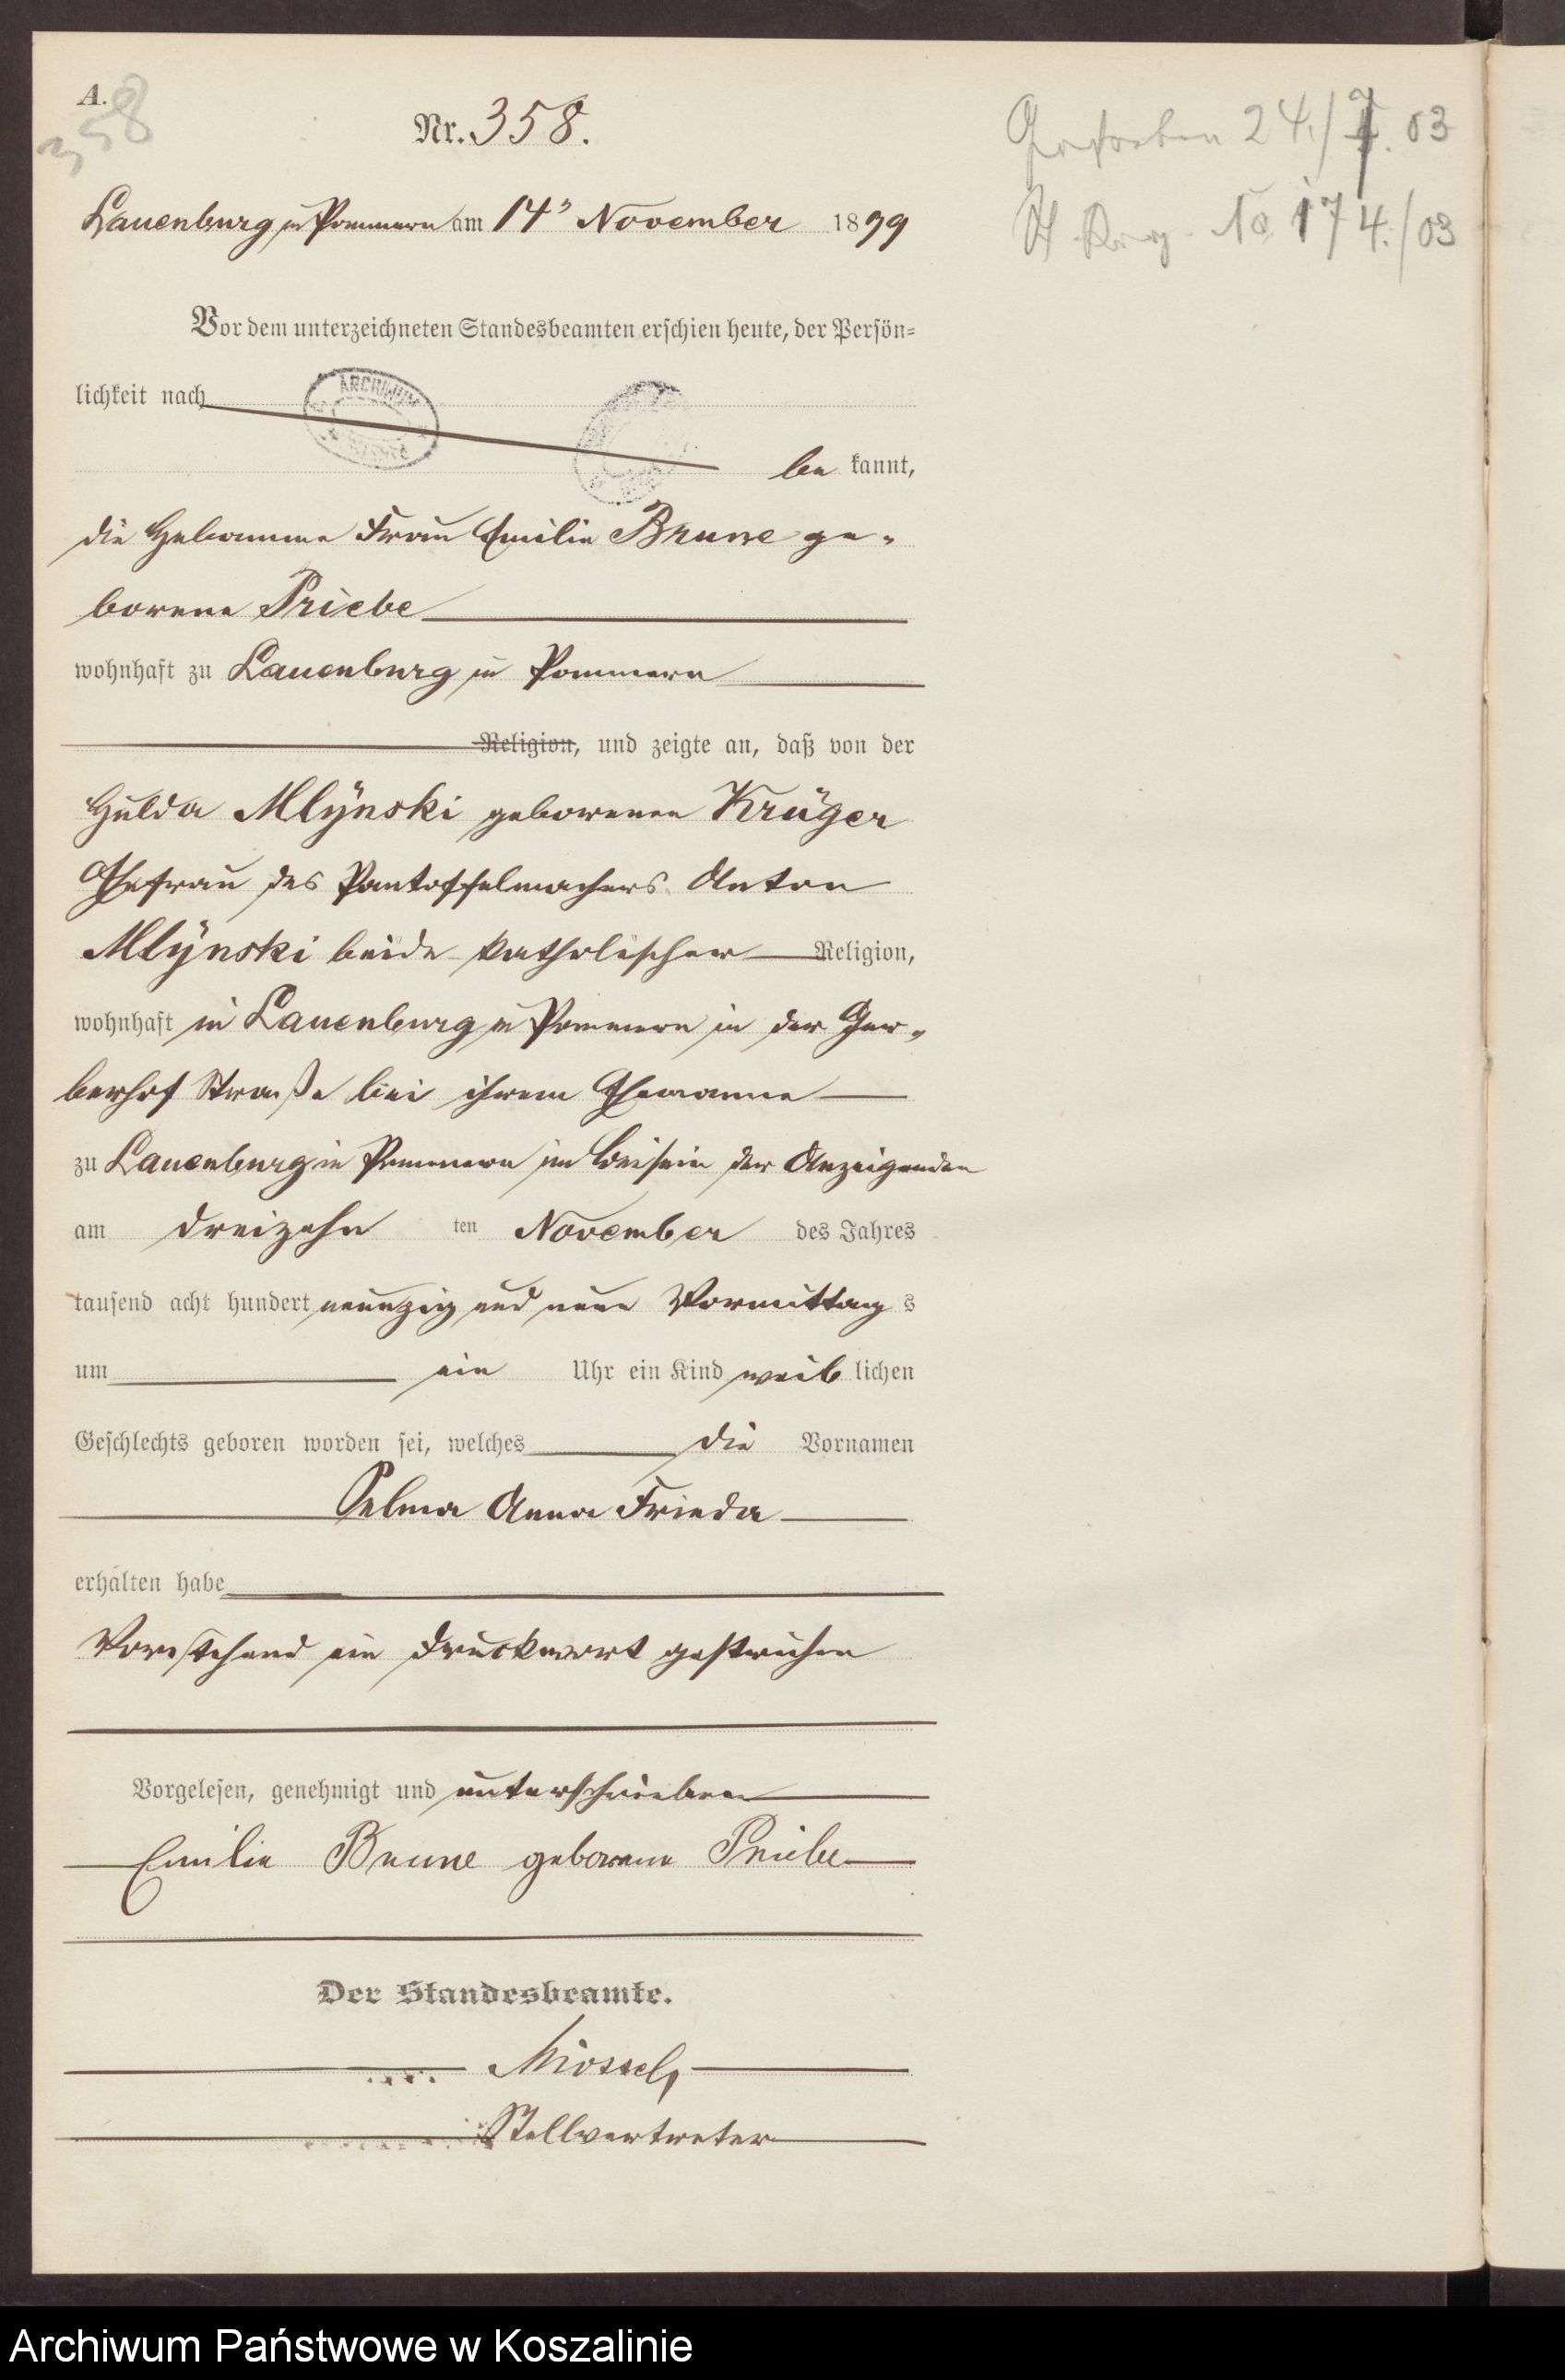 A.
358
Nr. 358.
Gestorben 24./7. 03
St. Reg. No 174./03
Lauenburg in Pommern am 14t November 1899
Vor dem unterzeichneten Standesbeamten erschien heute, der Persön-
lichkeit nach
ARCHIWUM
be kannt,
die Hebamme Frau Emilie Brune ge-
borene Priebe
wohnhaft zu Lauenburg in Pommern
Religion, und zeigte an, daß von der
Hulda Mlÿnski geborenen Krüger
Ehefrau des Pantoffelmachers Anton
Mlÿnski beide katholischer Religion,
wohnhaft in Lauenburg in Pommern in der Ger-
berhof Straße bei ihrem Ehemanne
zu Lauenburg in Pommern im Beisein der Anzeigenden
am dreizehn ten November des Jahres
tausend acht hundert neunzig und neun Vormittag s
um ein Uhr ein Kind weib lichen
Geschlechts geboren worden sei, welches die Vornamen
Selma Anna Frieda
erhalten habe
Vorstehend ein Druckwort gestrichen
Vorgelesen, genehmigt und unterschrieben
Emilie Brune geborene Priebe
Der Standesbeamte.
Stellvertreter
Archiwum Państwowe w Koszalinie